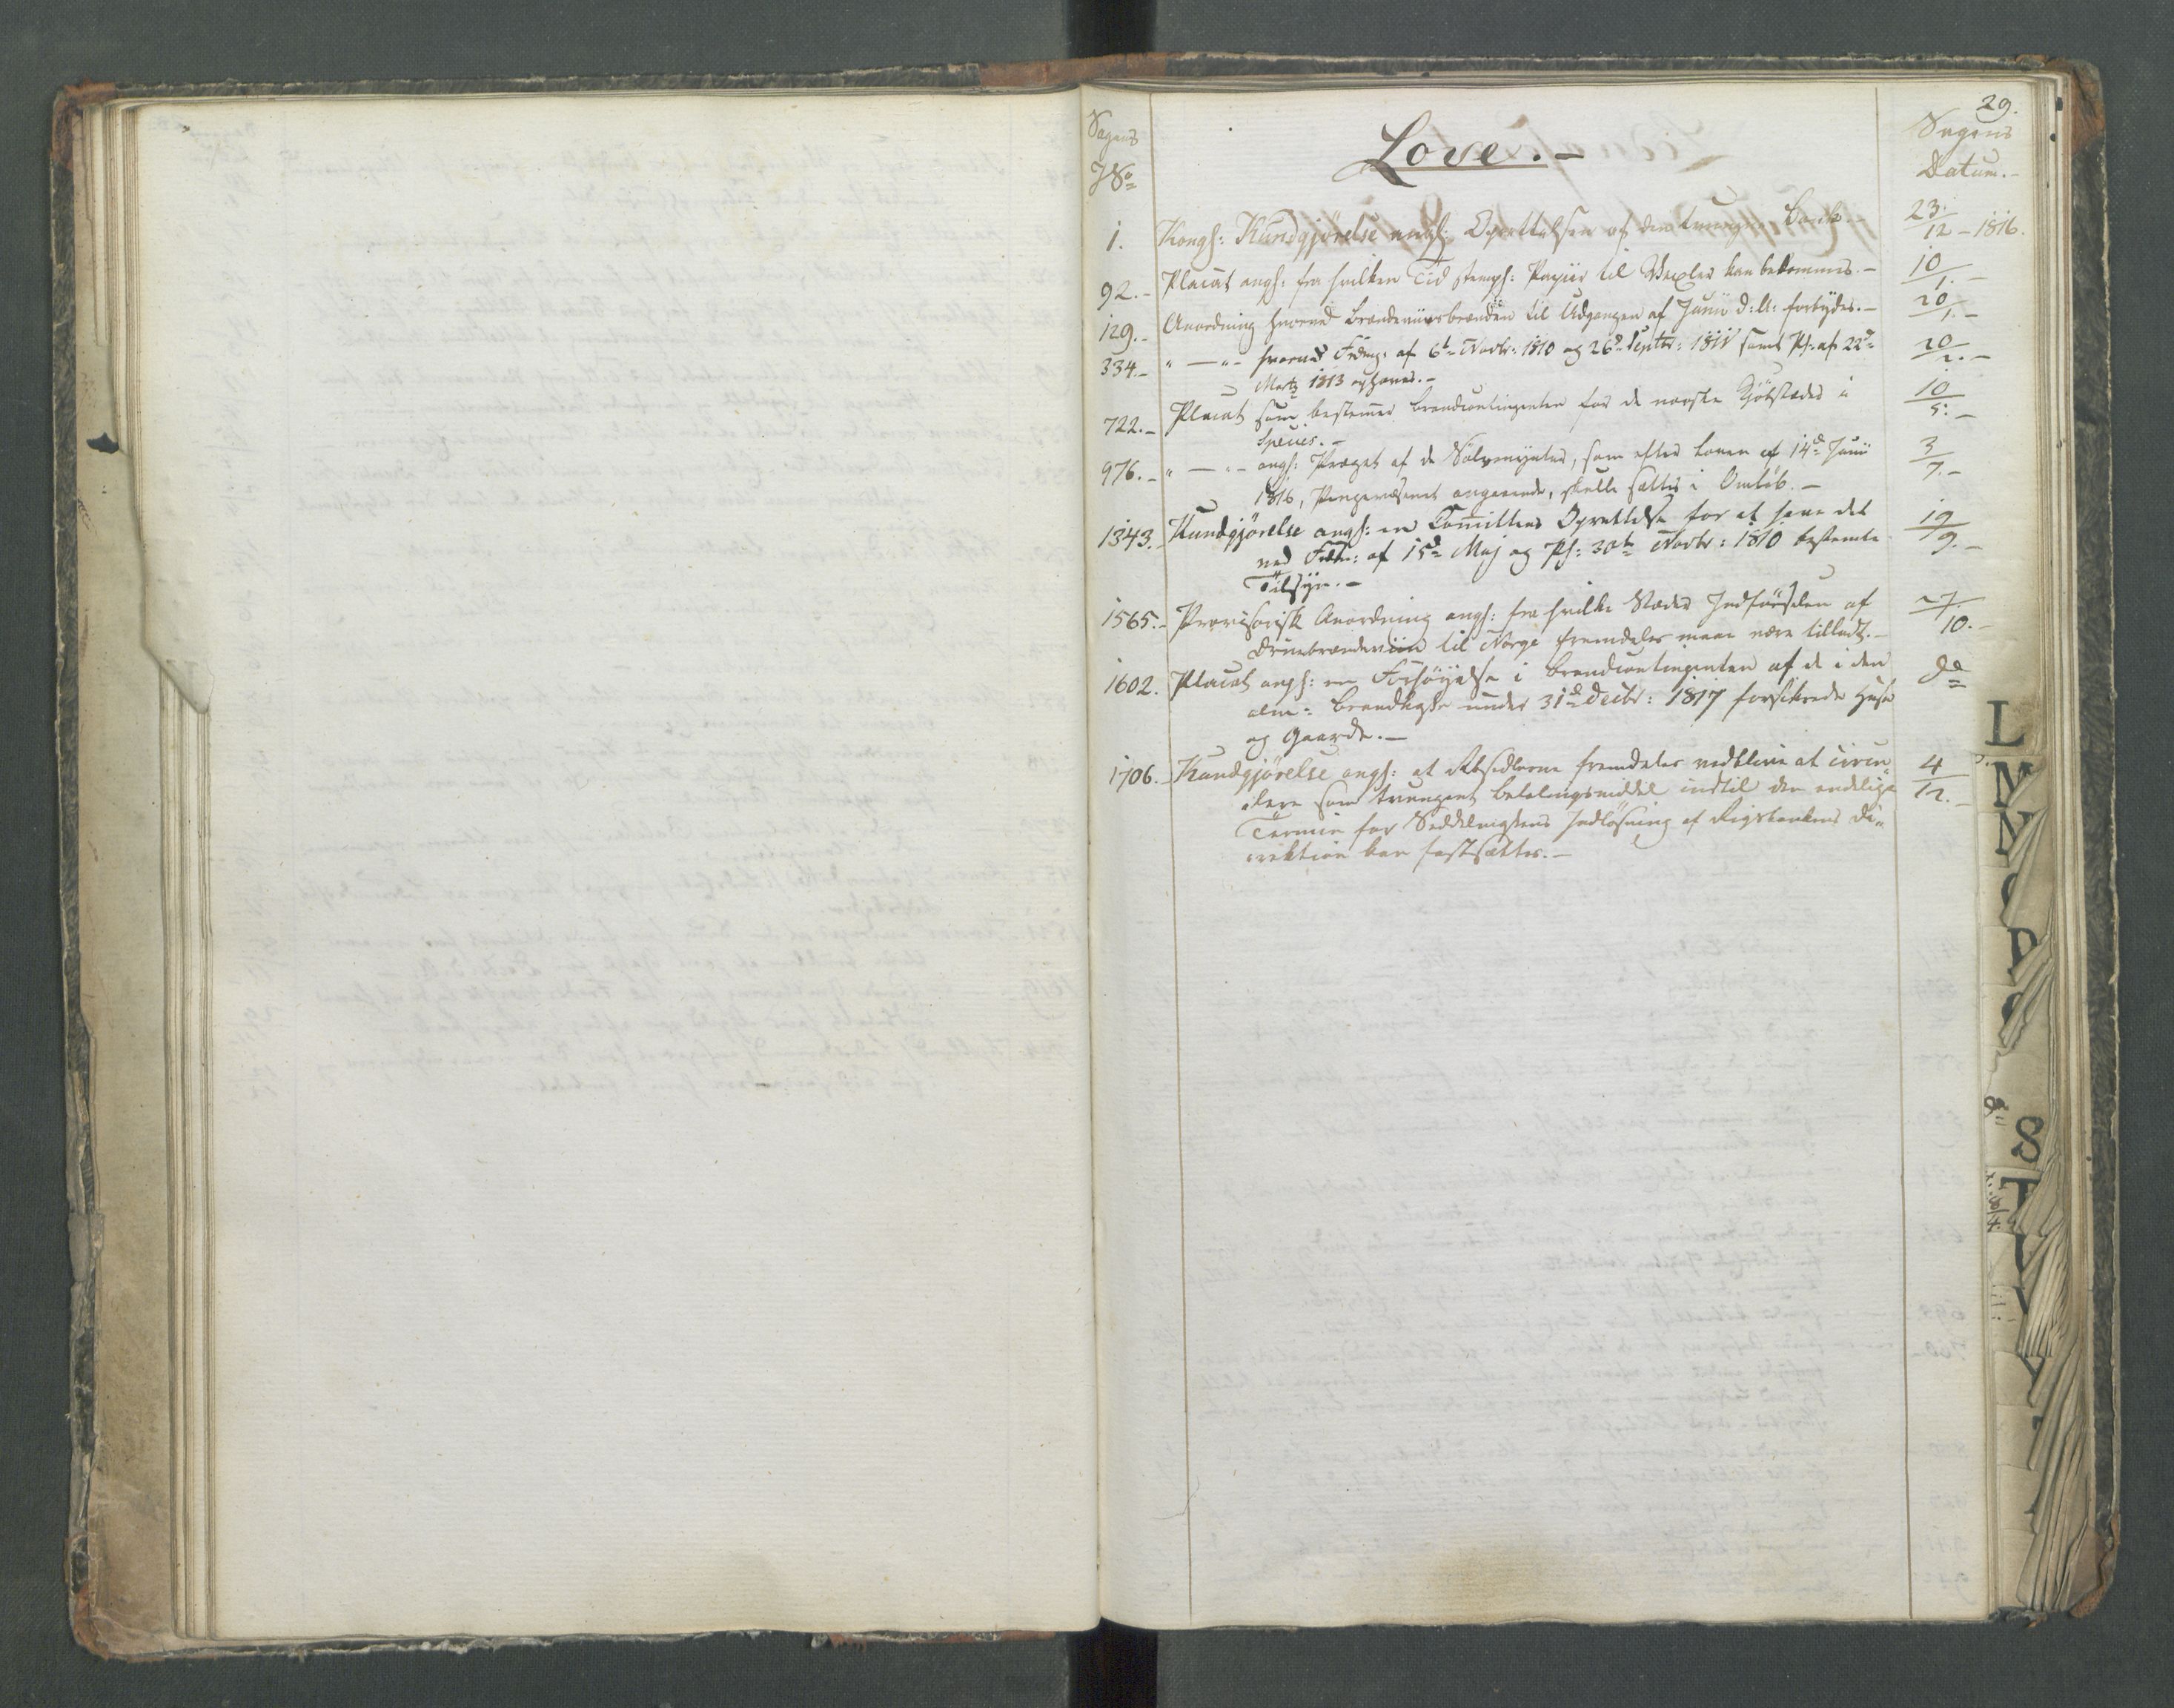 29.
Sagens
J No
Love. -
Sagens
Datum. -
1. Kongl: Kundgjörelse angl: Oprettelsen af den tvungne Bank. - 23/12 - 1816.
92. - Placat angl: fra hvilken Tid stempl: Papiir til Vexler kan bekommes. - 10/1. -
129. - Anordning hvorved Brændeviinsbrænden til Udgangen af Junii d: A: forbydes. - 20/1. -
334. - " — " - hvorved Frdng: af 6t Novbr: 1810 og 26d Septbr: 1811 samt Pl: af 22d 20/2. -
Martz 1813 ophæves. -
722. - Placat som bestemmer Brandcontingenten for de norske Kjöbstæder i 10/5. -
Species. -
976. - " — " - angl: Præget af de Sölvmynter, som efter Loven af 14d Junii 3/7. -
1816, Pengevæsenet angaaende, skulle sættes i Omlöb. -
1343. - Kundgjörelse angl: en Committees Oprettelse for at have det 19/9. -
ved Frdn: af 15d Maj og Pl: 30t Novbr: 1810 bestemte
Tilsyn. -
1565. - Provisorisk Anordning angl: fra hvilke Stæder Indförselen af 27/10. -
Druebrændeviin til Norge fremdeles maae være tilladt. -
1602. Placat angl: en Forhöyelse i Brandcontingenten af de i den do
alm: Brandkasse under 31d Decbr: 1817 forsikrede Huse
og Gaarde. -
1706. - Kundgjörelse angl: at Rbsedlerne fremdeles vedblive at circu- 4/12. -
lere som tvungent Betalingsmiddel indtil den endelige
Termin for Seddelmassens Indlösning af Rigsbankens Di-
rektion kan fastsættes. -
L
M
N
O
P
S
T
V